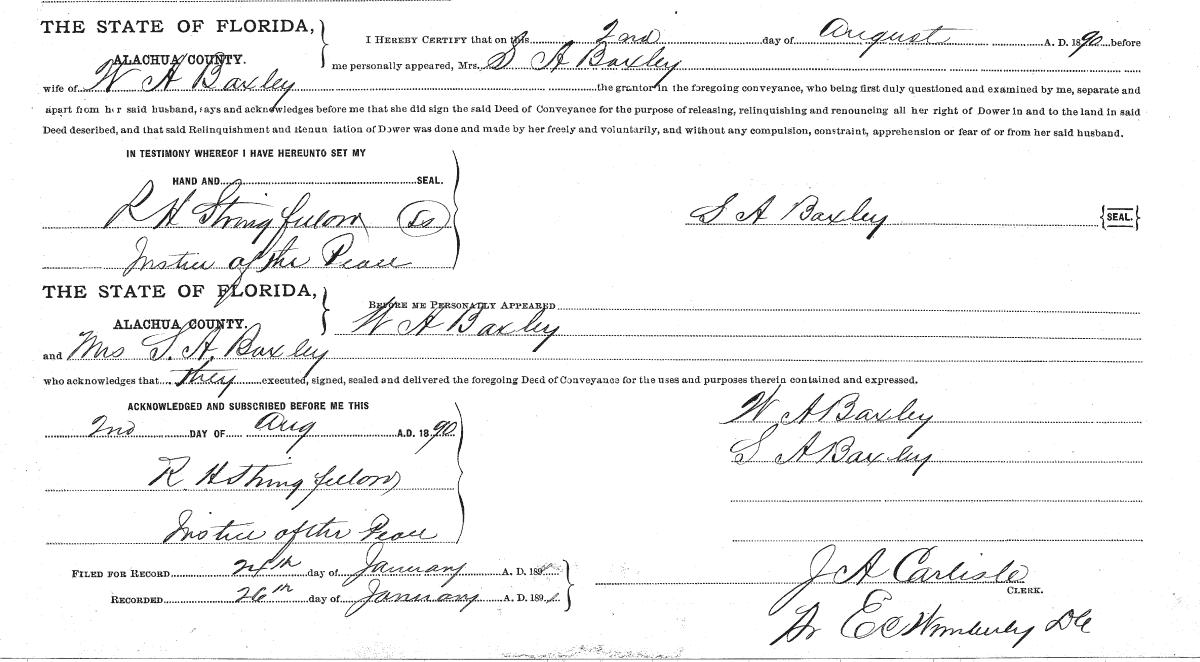 THE STATE OF FLORIDA,
ALACHUA COUNTY.
I HEREBY CERTIFY that on this 2nd day of August A. D. 1890 before
me personally appeared, Mrs. S A Baxley
wife of W A Baxley the grantor in the foregoing conveyance, who being first duly questioned and examined by me, separate and
apart from her said husband, says and acknowledges before me that she did sign the said Deed of Conveyance for the purpose of releasing, relinquishing and renouncing all her right of Dower in and to the land in said
Deed described, and that said Relinquishment and Renunciation of Dower was done and made by her freely and voluntarily, and without any compulsion, constraint, apprehension or fear of or from her said husband.
IN TESTIMONY WHEREOF I HAVE HEREUNTO SET MY
HAND AND SEAL.
R H Stringfellow
S A Baxley {SEAL.}
Justice of the Peace
THE STATE OF FLORIDA,
ALACHUA COUNTY.
BEFORE ME PERSONALLY APPEARED
W A Baxley
and Mrs S. A. Baxley
who acknowledges that they executed, signed, sealed and delivered the foregoing Deed of Conveyance for the uses and purposes therein contained and expressed.
ACKNOWLEDGED AND SUBSCRIBED BEFORE ME THIS
2nd DAY OF Aug A.D. 1890
W A Baxley
S A Baxley
R H Stringfellow
Justice of the Peace
FILED FOR RECORD 24th day of January A. D. 1891
RECORDED 26th day of January A. D. 1891
J A Carlisle
CLERK.
E C Wimberly DC